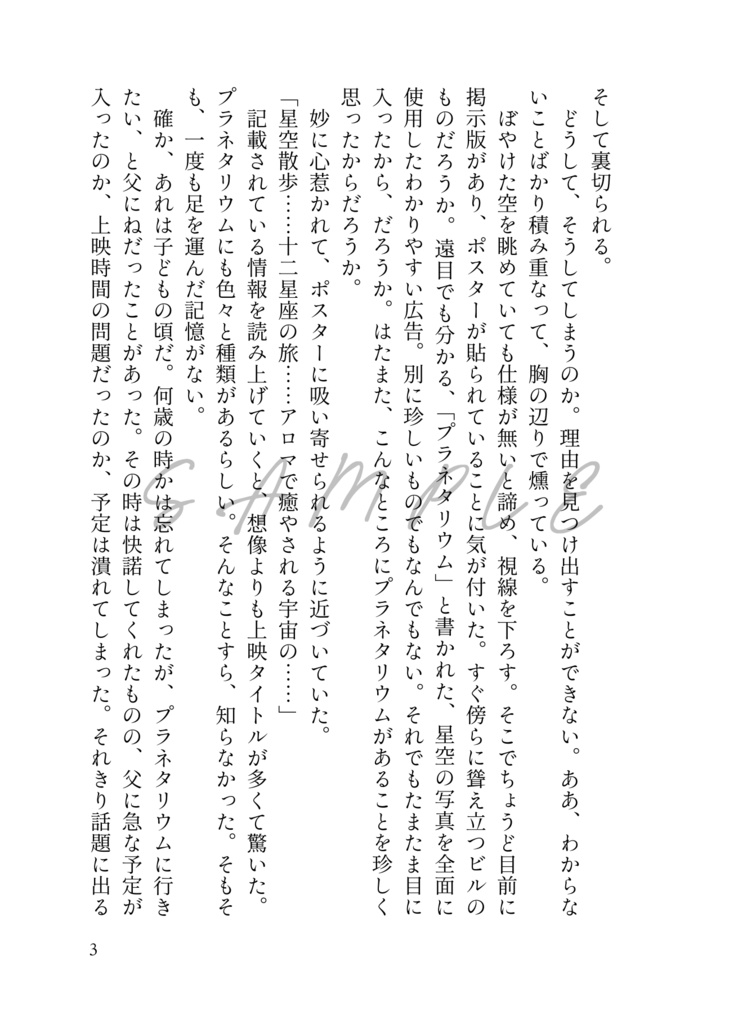 そして裏切られる。
　どうして、そうしてしまうのか。理由を見つけ出すことができない。ああ、わからな
いことばかり積み重なって、胸の辺りで燻っている。
　ぼやけた空を眺めていても仕様が無いと諦め、視線を下ろす。そこでちょうど目前に
掲示版があり、ポスターが貼られていることに気が付いた。すぐ傍らに聳え立つビルの
ものだろうか。遠目でも分かる、「プラネタリウム」と書かれた、星空の写真を全面に
使用したわかりやすい広告。別に珍しいものでもなんでもない。それでもたまたま目に
入ったから、だろうか。はたまた、こんなところにプラネタリウムがあることを珍しく
思ったからだろうか。
　妙に心惹かれて、ポスターに吸い寄せられるように近づいていた。
「星空散歩……十二星座の旅……アロマで癒やされる宇宙の……」
　記載されている情報を読み上げていくと、想像よりも上映タイトルが多くて驚いた。
プラネタリウムにも色々と種類があるらしい。そんなことすら、知らなかった。そもそ
も、一度も足を運んだ記憶がない。
　確か、あれは子どもの頃だ。何歳の時かは忘れてしまったが、プラネタリウムに行き
たい、と父にねだったことがあった。その時は快諾してくれたものの、父に急な予定が
入ったのか、上映時間の問題だったのか、予定は潰れてしまった。それきり話題に出る
3
SAMPLE